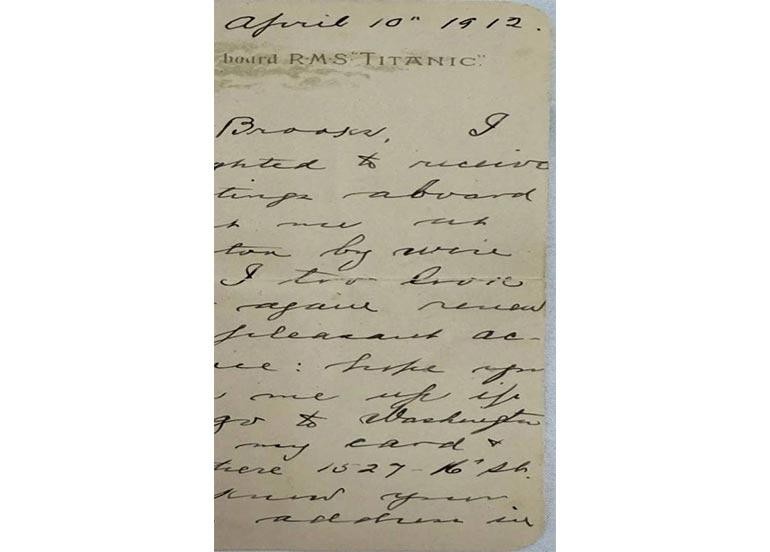 April 10" 1912.
board R·M·S "TITANIC".
Brooks, I
ghted to receive
tings aboard
t me at
ton by wire
I too love
again renew
pleasant ac-
ce: hope you
me up if
go to Washington
my card &
here 1527-16" St.
know your
address in